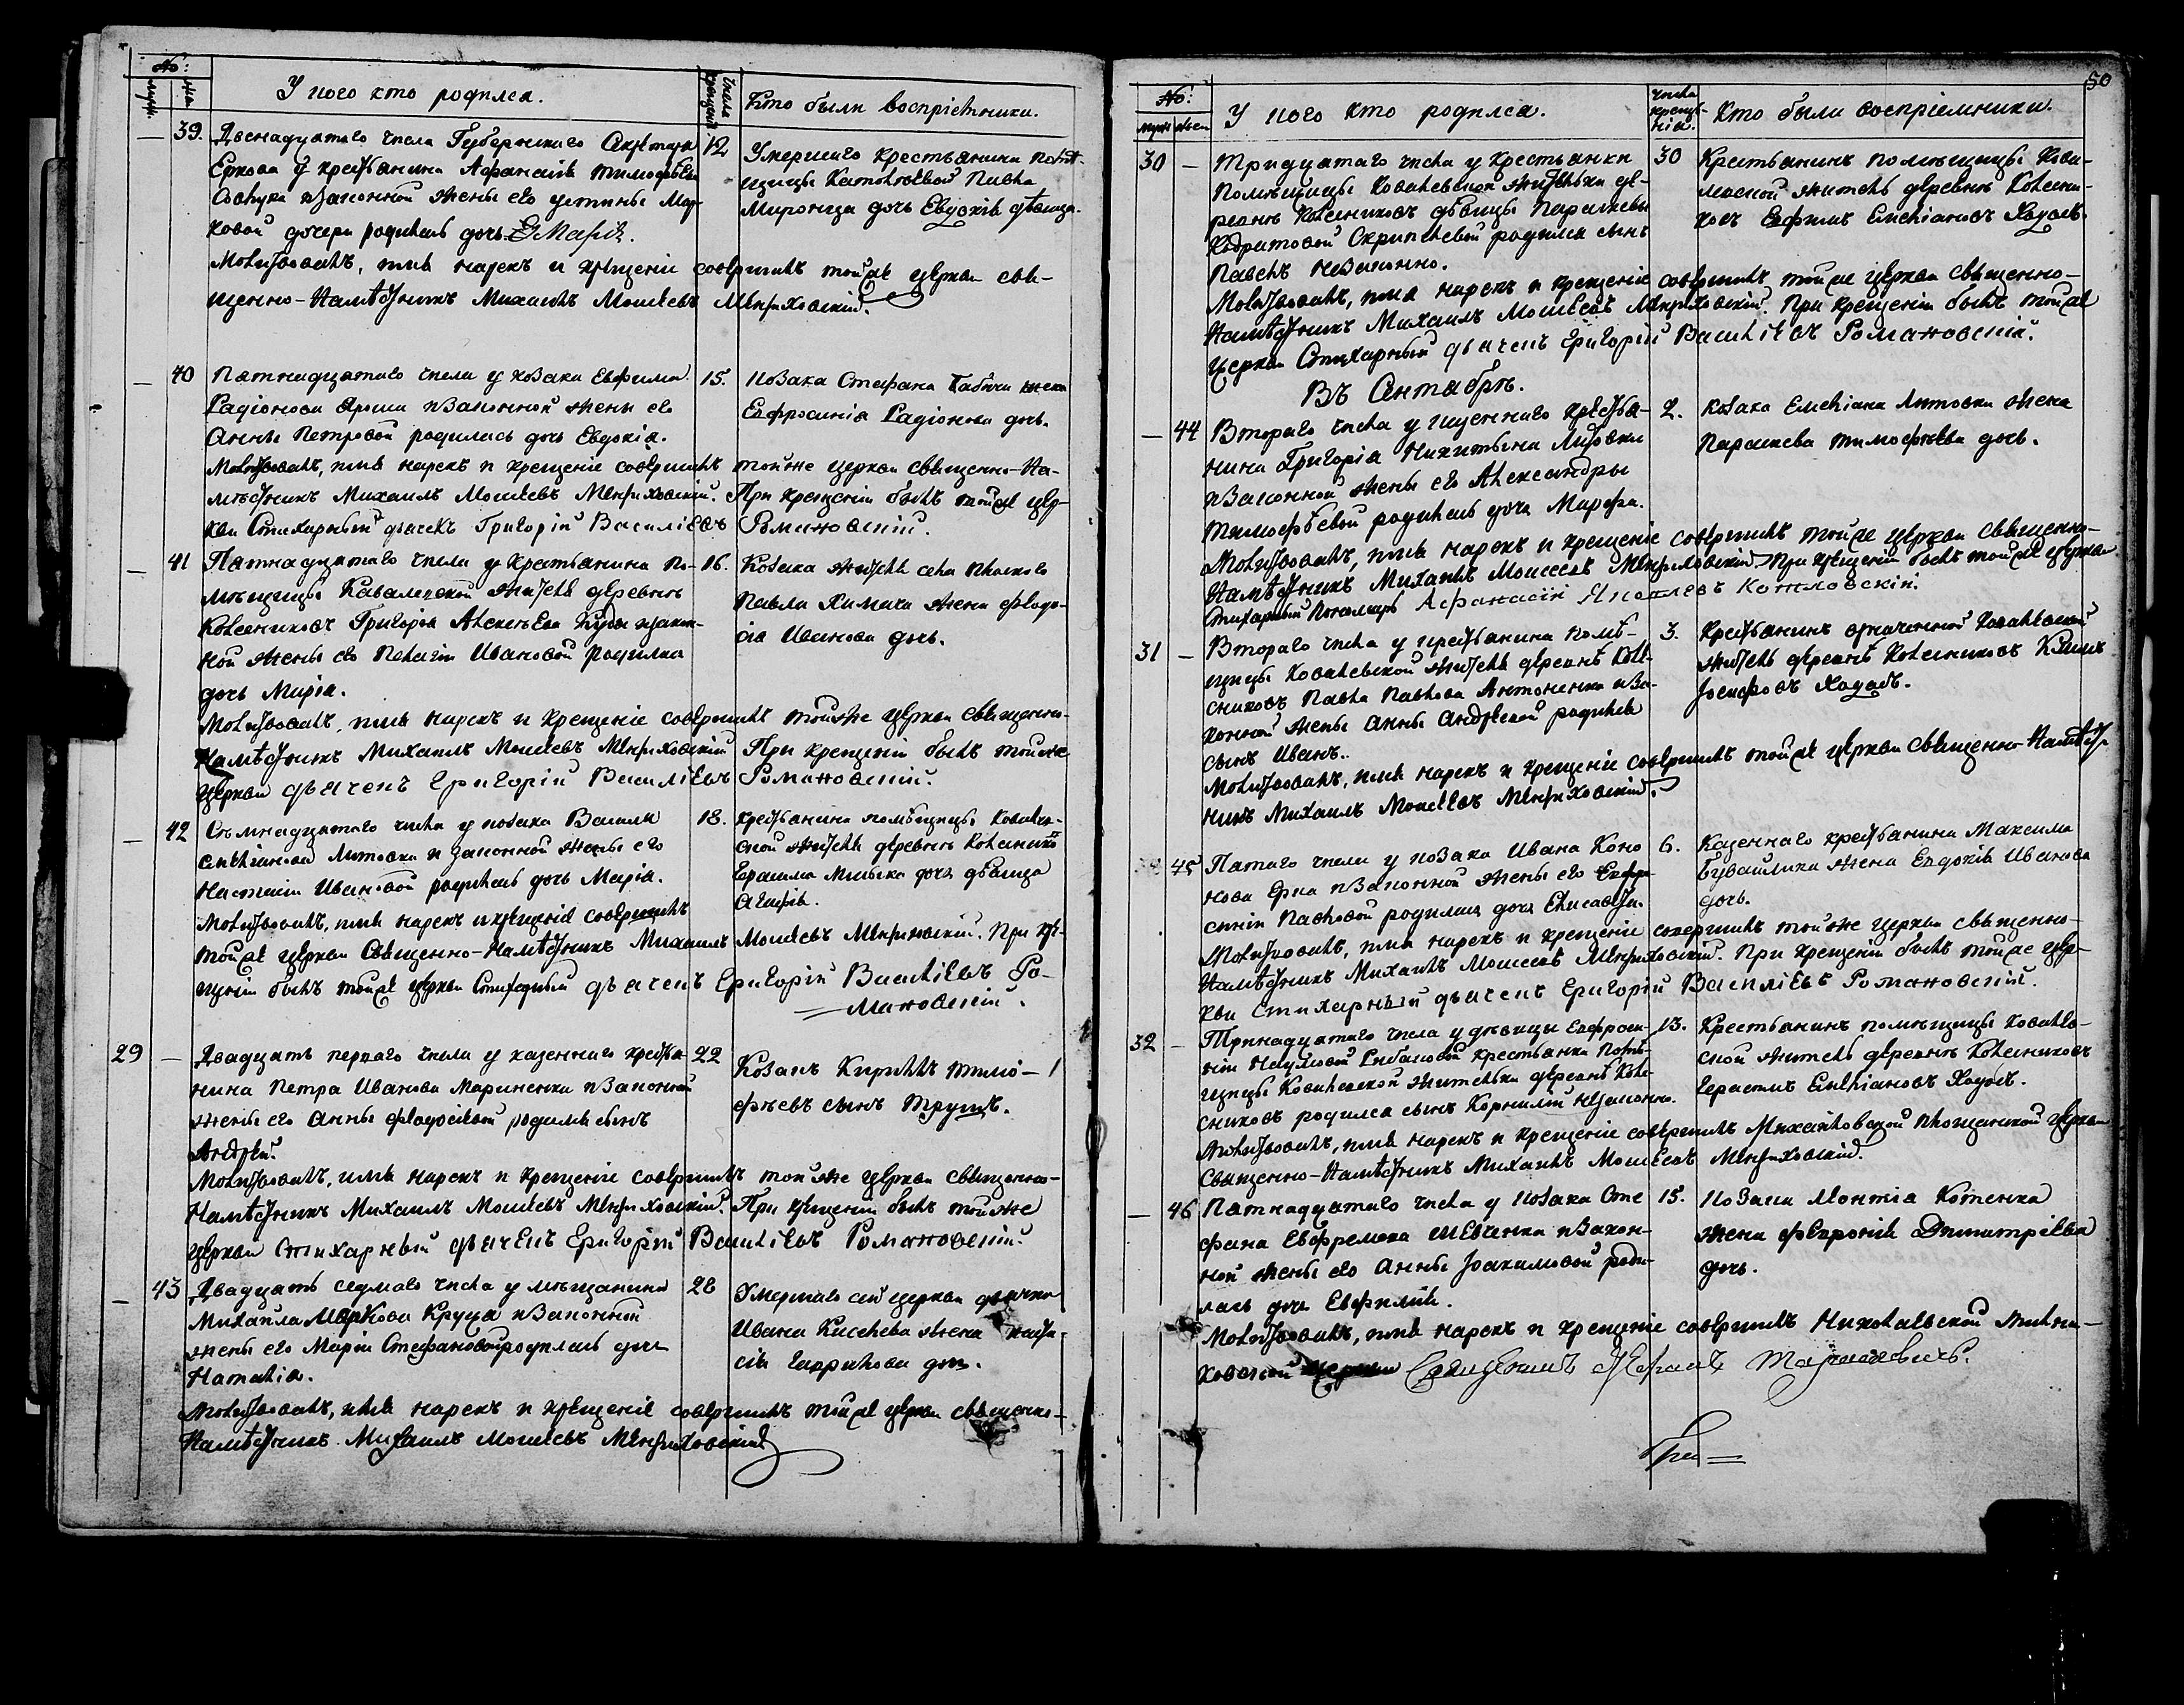 №:
муж. же.
У кого кто родился.
Числа крещенія.
Кто были воспріемники.
— 39. Двенадцатаго числа Губернскаго Секретаря 12
Еркова у крестьянина Афанасія Тимофѣева
законной жены его Устины Мар-
ковой дочери родилась дочь Марія.
Умершаго крестьянина помѣ-
щицы Павла
Миронца дочь Евдокія дѣвица.
Молитвовалъ, имя нарекъ и крещеніе совершилъ тойже церкви свя-
щенно-Намѣстникъ Михаилъ Моисеевъ Менжиховскій.
— 40 Пятнадцатаго числа у козака Евфима 15.
Радіонова Яроша и законной жены его
Анны Петровой родилась дочь Евдокія.
Козака Стефана Бабича жена
Евфросинія Радіонова дочь.
Молитвовалъ, имя нарекъ и крещеніе совершилъ тойже церкви священно-На-
мѣстникъ Михаилъ Моисеевъ Менжиховскій. При крещеніи былъ тойже цер-
кви Стихарный дьячекъ Григорій Василіевъ Романовскій.
— 41 Пятнадцатаго числа у крестьянина По- 16.
мѣщицы Ковалевской жителя деревни
Колесниковъ Григорія Алексѣева и закон-
ной жены его Пелагіи Ивановой родилась
дочь Марія.
Козака жителя села Плоского
Павла Химича жена Феодо-
сія Иванова дочь.
Молитвовалъ, имя нарекъ и крещеніе совершилъ тойже церкви священно-
Намѣстникъ Михаилъ Моисеевъ Менжиховскій При крещеніи былъ тойже
церкви дьячекъ Григорій Василіевъ Романовскій.
— 42 Семнадцатаго числа у козака Василія 18.
Емеліанова Литовки и законной жены его
Настасіи Ивановой родилась дочь Марія.
крестьянина помѣщицы Ковалев-
ской жителя деревни Колесниковъ
Герасима дочь дѣвица
Агафія.
Молитвовалъ, имя нарекъ и крещеніе совершилъ
тойже церкви Священно-Намѣстникъ Михаилъ Моисеевъ Менжиховскій. При кре-
щеніи былъ тойже церкви Стихарный дьячекъ Григорій Василіевъ Ро-
мановскій.
29 — Двадцать перваго числа у казеннаго крестья- 22
нина Петра Иванова Мариненка и законной
жены его Анны Феодосіевой родился сынъ
Андрей.
Козакъ Кириллъ Тимо-
фѣевъ сынъ Трущъ.
Молитвовалъ, имя нарекъ и крещеніе совершилъ тойже церкви священно-
Намѣстникъ Михаилъ Моисеевъ Менжиховскій. При крещеніи былъ тойже
церкви стихарный дьячекъ Григорій Василіевъ Романовскій.
— 43 Двадцать седмаго числа у мѣщанина 28
Михаила Маркова Круца и законной
жены его Маріи Стефановой родилась дочь
Наталія.
Умершаго сей церкви дьячка
Ивана Киселева жена Наста-
сія Гаврилова дочь.
Молитвовалъ, имя нарекъ и крещеніе совершилъ тойже церкви священно-
Намѣстникъ Михаилъ Моисеевъ Менжиховскій
50
№:
муж жен
У кого кто родился.
Числа креще-
нія.
Кто были воспріемники.
30 — Тридцатаго числа у крестьянки 30
Помѣщицы Ковалевской жительки де-
ревни Колесниковъ дѣвицы Параскевы
Кодратовой родился сынъ
Павелъ незаконно.
Крестьянинъ помѣщицы Кова-
левской житель деревни Колесни-
ковъ Евфимъ Емеліановъ Ходосъ.
Молитвовалъ, имя нарекъ и крещеніе совершилъ тойже церкви священно-
Намѣстникъ Михаилъ Моисеевъ Менжиховскій. При крещеніи былъ тойже
церкви Стихарный дьячекъ Григорій Василіевъ Романовскій.
Въ Сентябрѣ.
— 44 Втораго числа у казеннаго крестья- 2.
нина Григорія Никитина Литовки
и законной жены его Александры
Тимофѣевой родилась дочь Марфа.
Козака Емеліана Литовки жена
Параскева Тимофѣева дочь.
Молитвовалъ, имя нарекъ и крещеніе совершилъ тойже церкви священно-
Намѣстникъ Михаилъ Моисеевъ Менжиховскій При крещеніи былъ тойже церкви
Стихарный Пономарь Афанасій Яковлевъ Котловскій.
31 — Втораго числа у крестьянина помѣ- 3.
щицы Ковалевской жителя деревни Коле-
сниковъ Павла Павлова Антоненка и за-
конной жены Анны Андреевой родился
сынъ Иванъ.
Крестьянинъ означенной Ковалевской
житель деревни Колесниковъ
Іосифовъ Ходосъ.
Молитвовалъ, имя нарекъ и крещеніе совершилъ тойже церкви священно-Намѣст-
никъ Михаилъ Моисеевъ Менжиховскій.
45 Пятаго числа у козака Ивана Коно- 6.
нова и законной жены его Евфро-
синіи Павловой родилась дочь Елисавета.
Казеннаго крестьянина Максима
жена Евдокія Иванова
дочь.
Молитвовалъ, имя нарекъ и крещеніе совершилъ тойже церкви священно-
Намѣстникъ Михаилъ Моисеевъ Менжиховскій. При крещеніи былъ тойже цер-
кви Стихарный дьячекъ Григорій Василіевъ Романовскій.
32 — Тринадцатаго числа у дѣвицы Евфроси- 13.
ніи крестьянки Помѣ-
щицы Ковалевской жительки деревни Коле-
сниковъ родился сынъ Корнилій незаконно.
Крестьянинъ помѣщицы Ковалев-
ской житель деревни Колесниковъ
Герасимъ Емеліановъ Ходосъ.
Молитвовалъ, имя нарекъ и крещеніе совершилъ Михайловской Площанской церкви
Священно-Намѣстникъ Михаилъ Моисеевъ Менжиховскій.
— 46 Пятнадцатаго числа у козака Сте- 15.
фана Евфремова Шевченка и закон-
ной жены его Анны Іоакимовой роди-
лась дочь Евфимія.
Козака Леонтія Котенка
жена Февронія Димитріева
дочь.
Молитвовалъ, имя нарекъ и крещеніе совершилъ Николаевской
церкви Священникъ